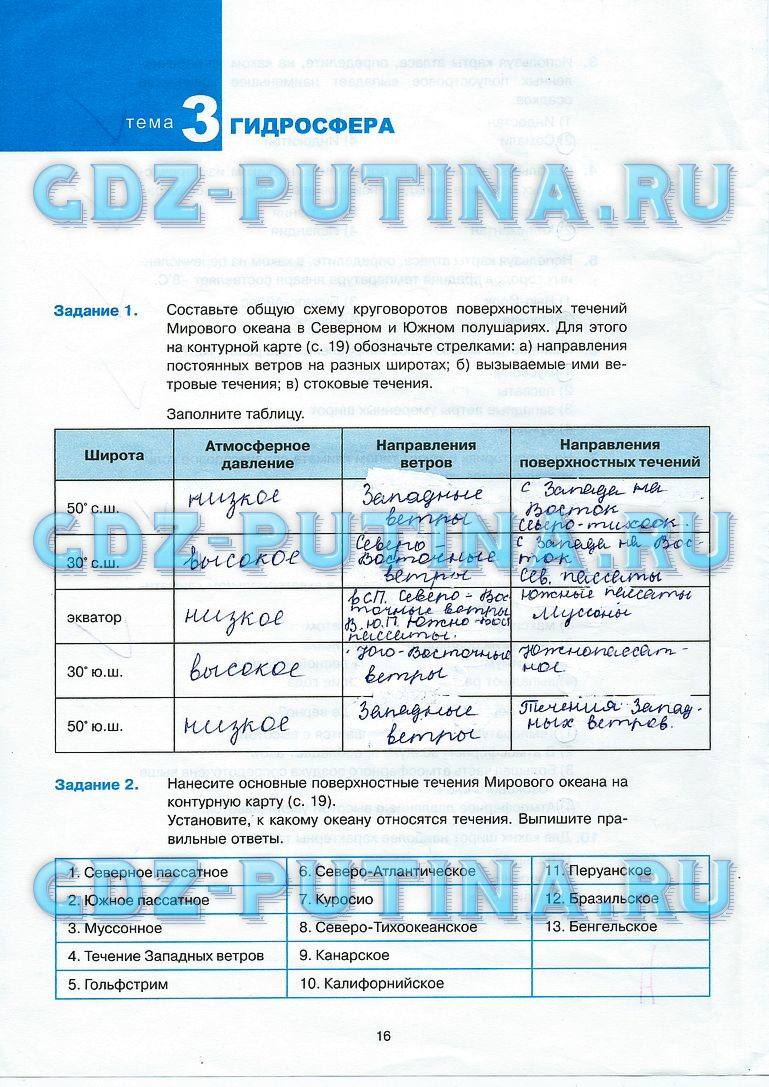 тема 3 ГИДРОСФЕРА
GDZ-PUTINA.RU
Задание 1. Составьте общую схему круговоротов поверхностных течений
Мирового океана в Северном и Южном полушариях. Для этого
на контурной карте (с. 19) обозначьте стрелками: а) направления
постоянных ветров на разных широтах; б) вызываемые ими ве-
тровые течения; в) стоковые течения.
Заполните таблицу.
Широта
Атмосферное
давление
Направления
ветров
Направления
поверхностных течений
50° с.ш.
низкое
Западные
ветры
с Запада на
Восток
Северо-тихоок.
GDZ-PUTINA.RU
30° с.ш.
высокое
Северо
Восточные
ветры
с Запада на Вос-
ток
Сев. пассаты
экватор
низкое
в С.П. Северо-Вос
точные ветры
В. Ю.П. Южно-Вост
пассаты.
Южные пассаты
Муссоны
30° ю.ш.
высокое
Юго-Восточные
ветры
Южнопассат-
ное
50° ю.ш.
низкое
Западные
ветры
Течения Запад-
ных ветров.
Задание 2. Нанесите основные поверхностные течения Мирового океана на
контурную карту (с. 19).
Установите, к какому океану относятся течения. Выпишите пра-
вильные ответы.
1. Северное пассатное
6. Северо-Атлантическое
11. Перуанское
GDZ-PUTINA.RU
2. Южное пассатное
7. Куросио
12. Бразильское
3. Муссонное
8. Северо-Тихоокеанское
13. Бенгельское
4. Течение Западных ветров
9. Канарское
5. Гольфстрим
10. Калифорнийское
16